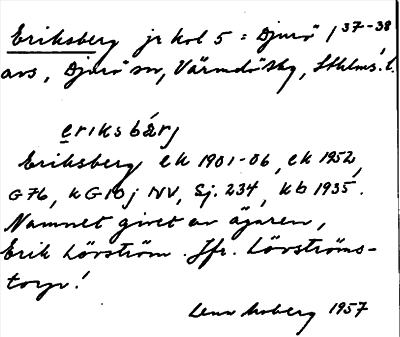 Eriksberg jr kol 5 = Djurö / 37-38
avs, Djurö sn, Värmdö skg, Sthlms l.
eriksbärj
Eriksberg ek 1901-06, ek 1952,
G76, k G10j NV, Sj. 234, kb 1935.
Namnet givet av ägaren,
Erik Lövström. Jfr. Lövströms-
torp!
Lena Moberg 1957